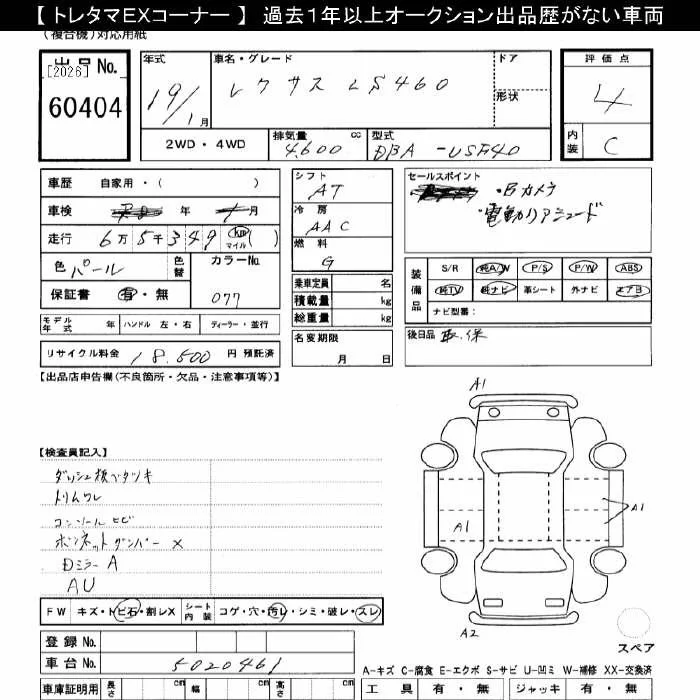 【 トレタマEXコーナー 】 過去1年以上オークション出品歴がない車両
(複合機)対応用紙
出品No.
[2026]
60404
年式
19/1月
車名・グレード
レクサス LS460
ドア
形状
評価点
4
内装
C
2WD・4WD
排気量
4,600 cc
型式
DBA -USF40
車歴 自家用・( )
車検 年 月
走行 6万5千349 km マイル ( )
色 パール
色替
カラーNo.
077
保証書 有・無
シフト
AT
冷房
AAC
燃料
G
乗車定員 名
積載量 kg
総重量 kg
セールスポイント
・Bカメラ
・電動リアシェード
装備品
S/R 純A/W P/S P/W ABS
純TV 純ナビ 革シート 外ナビ エアB
ナビ型番:
モデル年式 年 ハンドル 左・右 ディーラー・並行
リサイクル料金 18,600 円 預託済
名変期限
月 日
後日品 取.保
【出品店申告欄(不良箇所・欠品・注意事項等)】
【検査員記入】
ダッシュ板ベタツキ
トリムワレ
コンソールヒビ
ボンネットダンパー X
Dミラー A
AU
A1
A1
A1
A2
スペア
FW キズ・トビ石・割レX
シート内装 コゲ・穴・汚レ・シミ・破レ・スレ
登録No.
車台No. 5020461
車庫証明用 長さ cm 幅 cm 高さ cm
A-キズ C-腐食 E-エクボ S-サビ U-凹ミ W-補修 XX-交換済
工具 有・無 ジャッキ 有・無